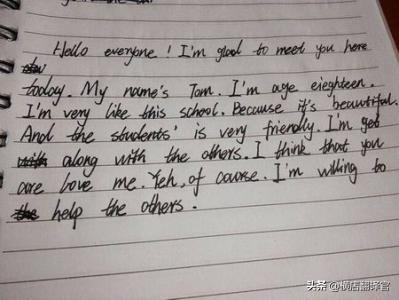 Hello everyone! I'm glad to meet you here
today. My name's Tom. I'm age eieghteen.
I'm very like this school. Because it's beautiful.
And the students' is very friendly. I'm get
along with the others. I think that you
are love me. Yeh, of course. I'm willing to
help the others.
头条 @横店翻译官